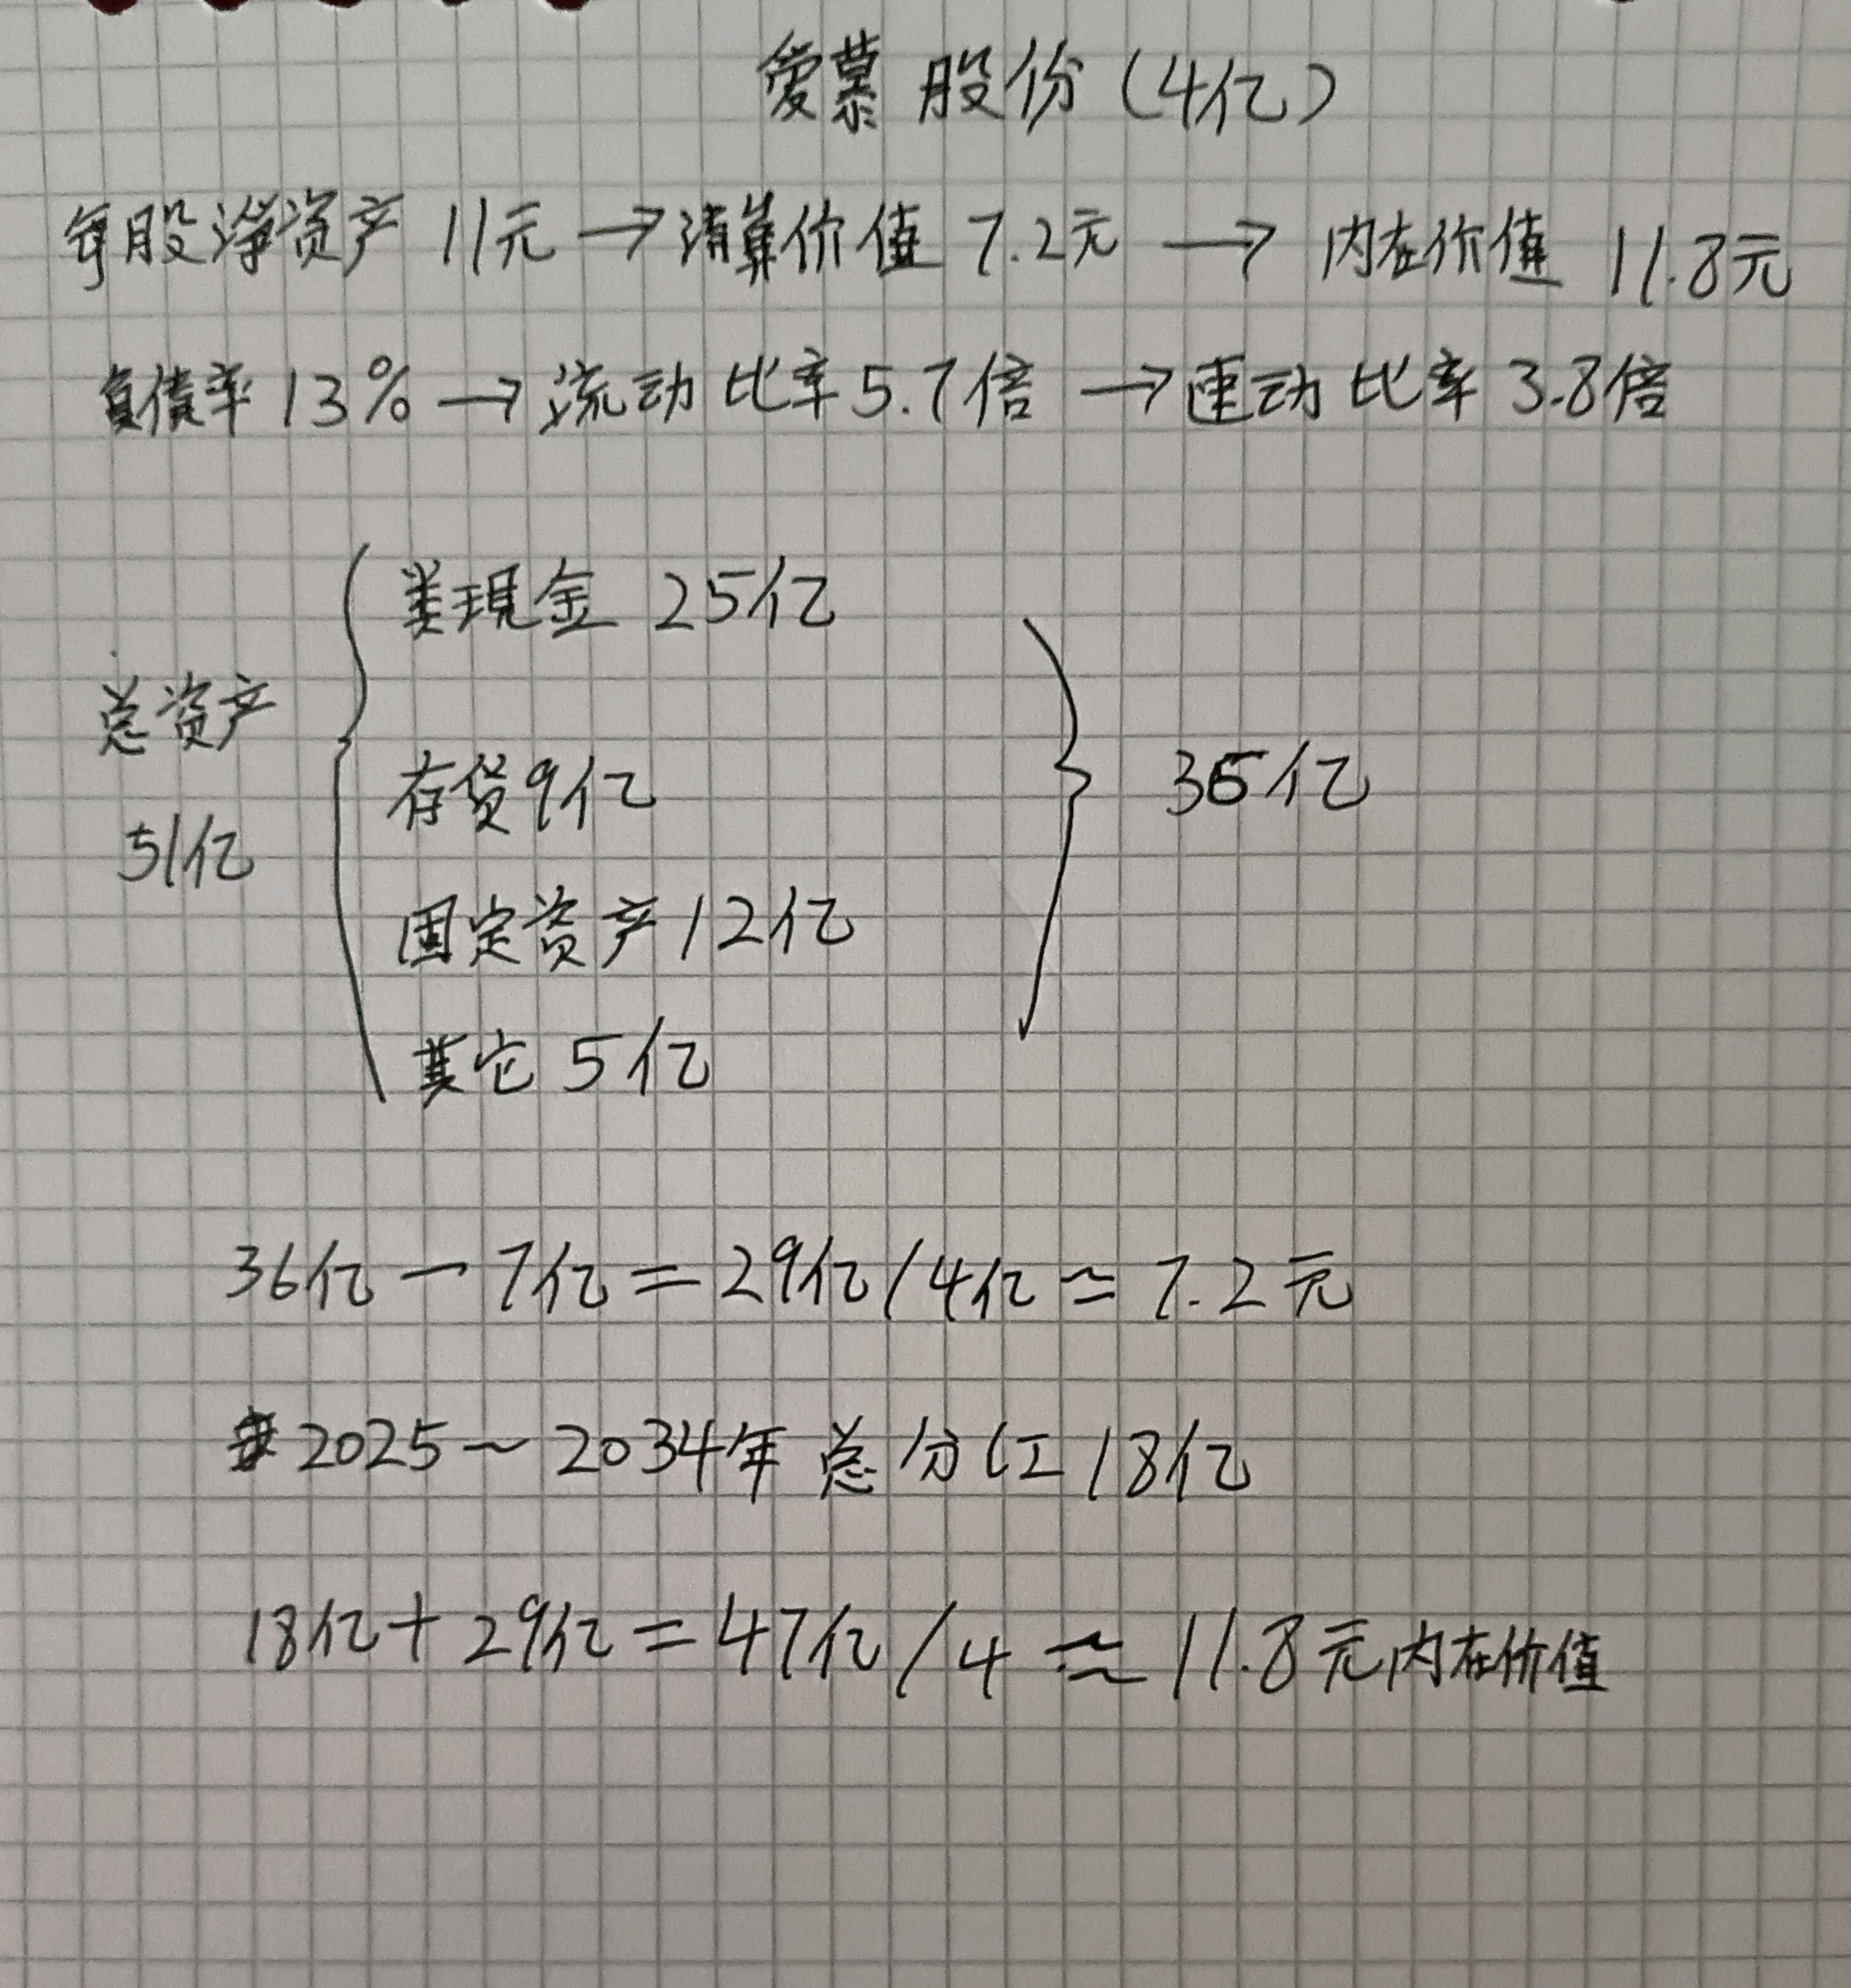 爱慕股份(4亿)
每股净资产 11元 → 清算价值 7.2元 → 内在价值 11.8元
负债率 13% → 流动比率 5.7倍 → 速动比率 3.8倍
类现金 25亿
总资产
51亿
存货9亿
36亿
固定资产12亿
其它 5亿
36亿 - 7亿 = 29亿/4亿 ≃ 7.2元
2025~2034年总分红18亿
18亿 + 29亿 = 47亿/4 ≈ 11.8元内在价值